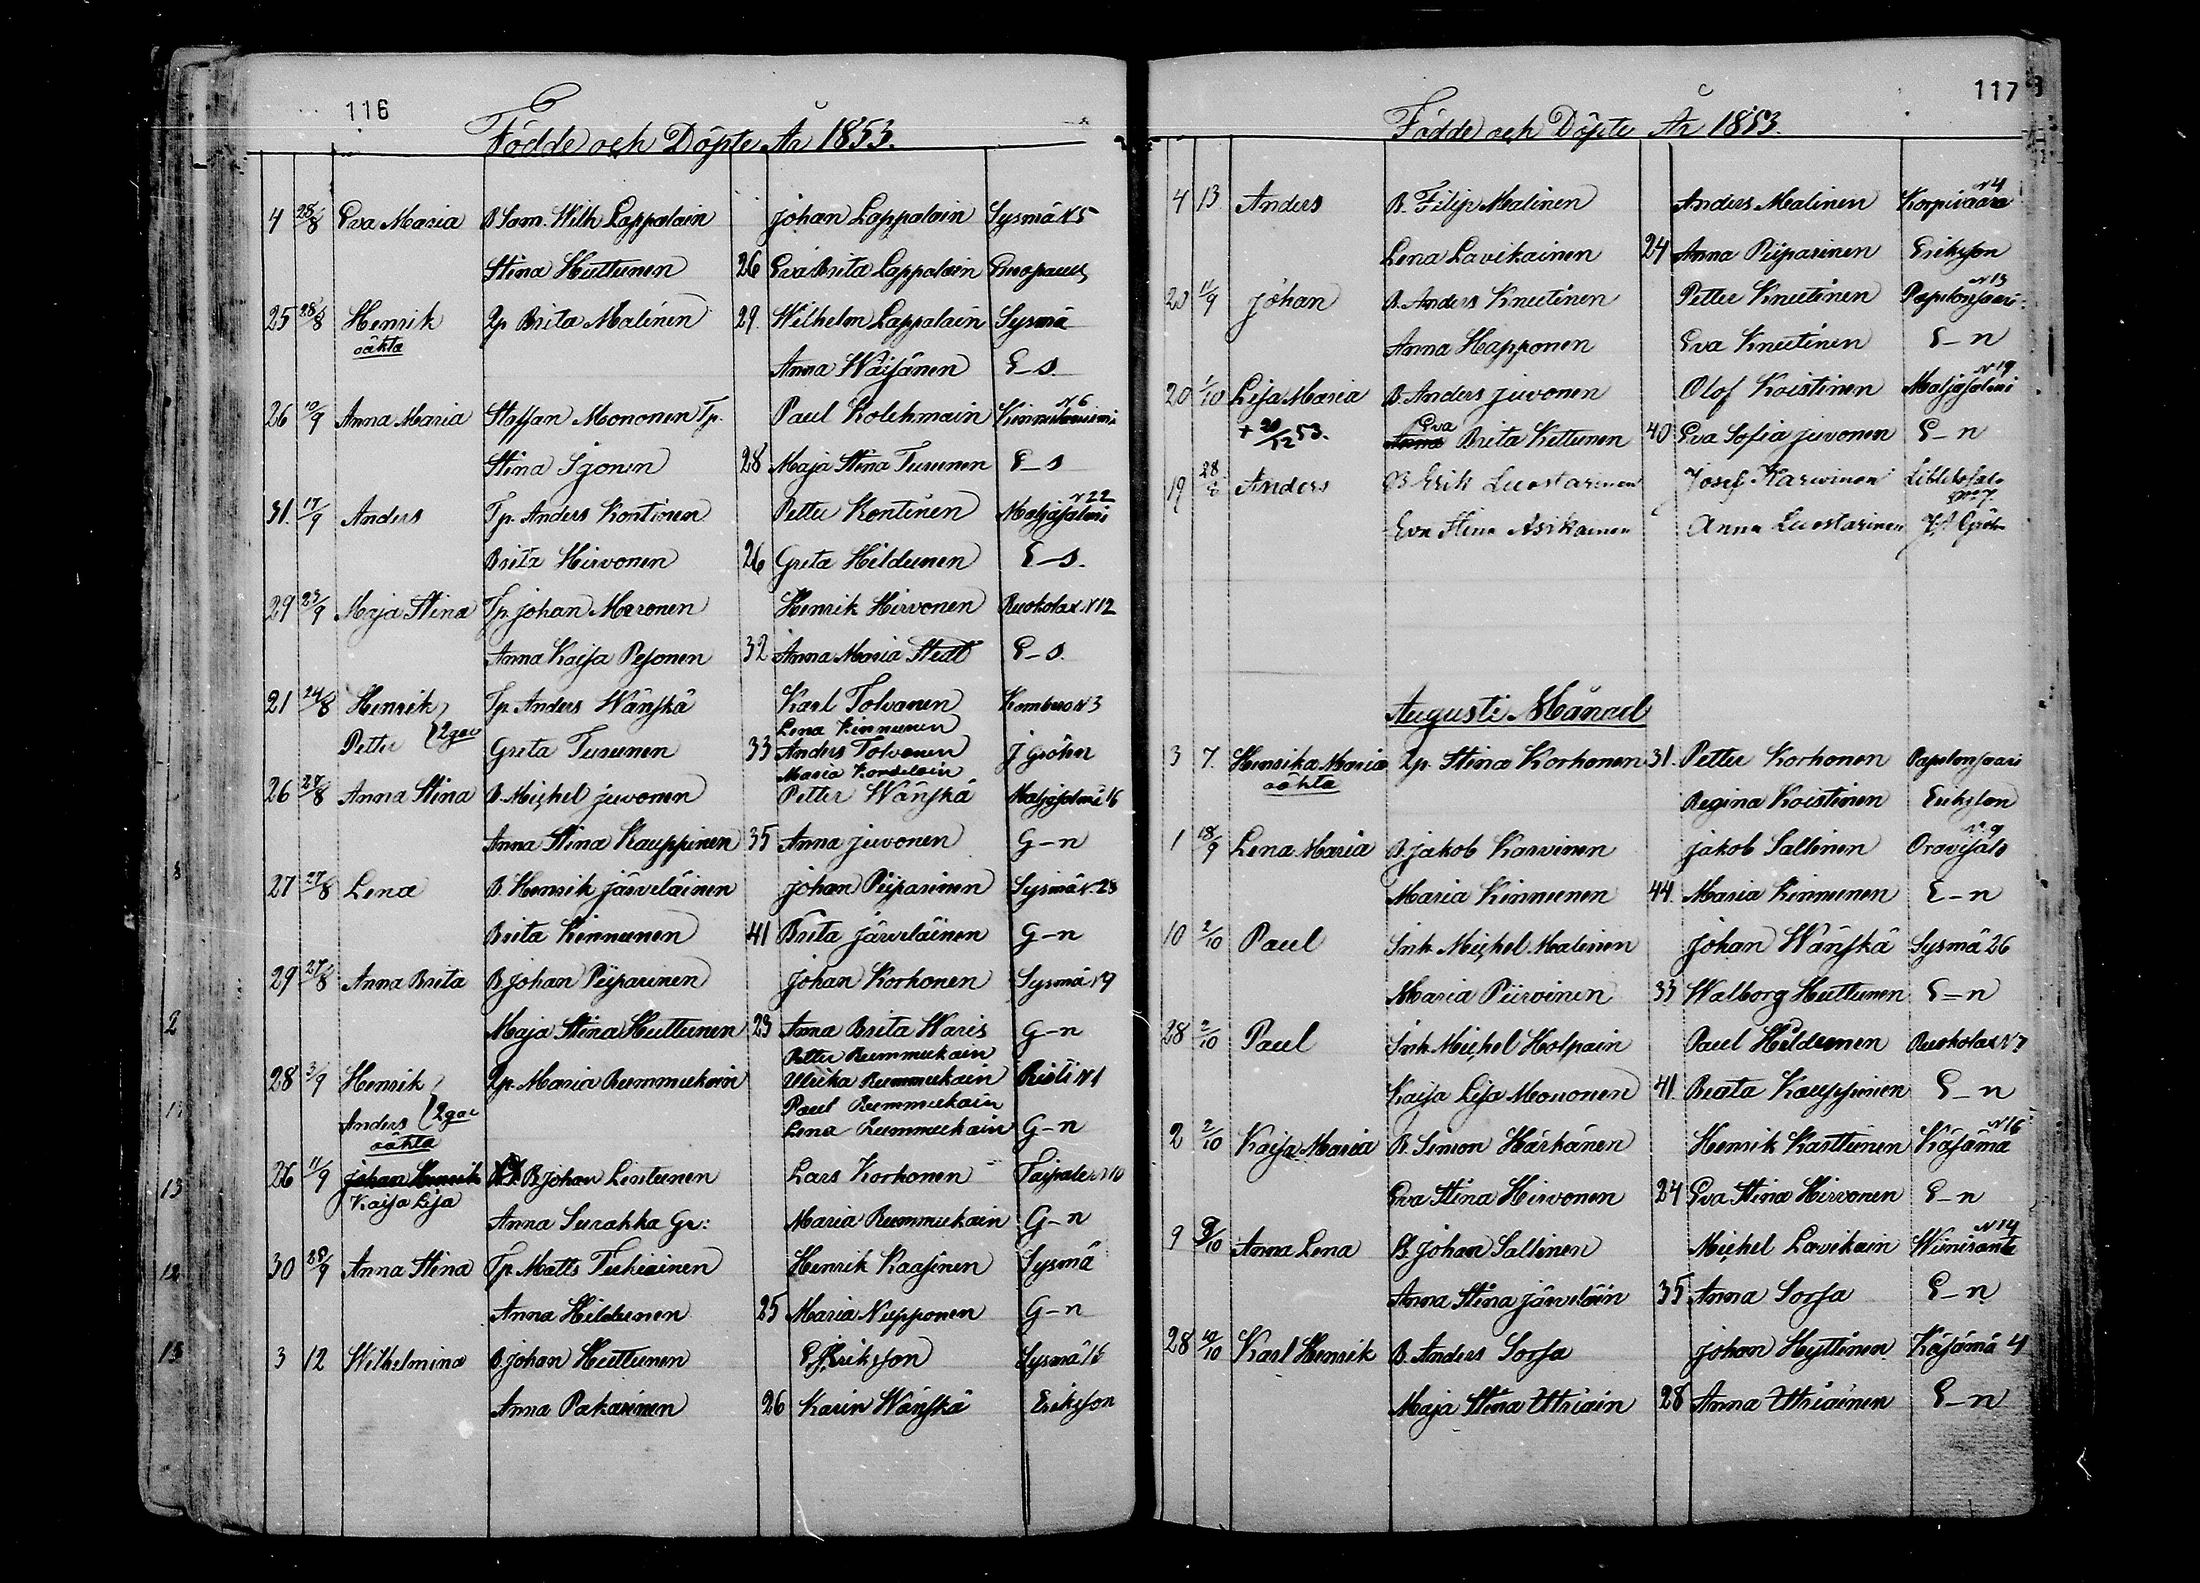 116
Födde och Döpte År 1853.
4 28/8 Eva Maria B Sam. Wilh Lappalain Johan Lappalain Sysmä N5
Stina Huttunen 26 Eva Brita Lappalain
25 28/8 Henrik Qp Brita Malinen 29. Wilhelm Lappalain Sysmä
oäkta
Anna Wäisänen E-s.
N 6
26 10/9 Anna Maria Staffan Mononen Tp. Paul Kolehmain
Stina Sjonen 28 Maja Stina Turunen E-s
N 22
31. 17/9 Anders Tp. Anders Kontinen Petter Kontinen Maljasalmi
Brita Hirvonen 26 Greta Hildunen E-s.
29 25/9 Maja Stina Tp. Johan Moronen Henrik Hirvonen Ruokolax N12
Anna Kaisa Pesonen 32 Anna Maria Stedt E-s.
21 24/8 Henrik Tp. Anders Wänskä Karl Tolvanen N3
Lena Kinnunen
Petter 2gar Greta Turunen 33 Anders Tolvanen J Gröhn
Maria
26 27/8 Anna Stina B. Michel Juvonen Petter Wänskä Maljasalmi 16
Anna Stina Kauppinen 35 Anna Juvonen G-n
27 27/8 Lena B. Henrik Järveläinen Johan Piiparinen Sysmä N. 23
Brita Kinnunen 41 Brita Järveläinen G-n
29 27/8 Anna Brita B Johan Piiparinen Johan Korhonen Sysmä N9
Maja Stina Huttunen 23 Anna Brita Waris G-n
Petter Rummukain
28 3/9 Henrik Qp. Maria Rummukain Ulrika Rummukain Risti N1
Paul Rummukain
Anders 2gar Lena Rummukain G-n
oäkta
26 11/9 Johan Henrik B Johan Lintunen Lars Korhonen Taipale N10
Kaisa Lisa
Anna Surakka Gr: Maria Rummukain G-n
30 25/9 Anna Stina Tp. Matts Tukiainen Henrik Kaasinen Sysmä
Anna Hildunen 25 Maria Nupponen G-n
3 12 Wilhelmina B. Johan Huttunen Eriksson Sysmä 15
Anna Pakarinen 26 Karin Wänskä Eriksson
117
Födde och Döpte År 1853.
N4
4 13 Anders B. Filip Malinen Anders Malinen Korpivaara
Lena Lavikainen 24 Anna Piiparinen Eriksson
N13
20 11/9 Johan B. Anders Knutinen Petter Knutinen Papelonsaari
Anna Happonen Eva Knutinen E-n
N19
20 1/10 Lisa Maria B. Anders Juvonen Olof Koistinen Maljasalmi
+ 20/12 53. Eva
Anna Brita Kettunen 40 Eva Sofia Juvonen E-n
19 28/8 Anders B Erik Luostarinen Josef Karvinen
No 7
Eva Stina Asikainen Anna Luostarinen
Augusti Månad
3 7. Henrika Maria Qp. Stina Korhonen 31. Petter Korhonen Papelonsaari
oäkta
Regina Koistinen Eriksson
N. 9
1 18/9 Lena Maria B. Jakob Karvinen Jakob Sallinen Oravisalo
Maria Kinnunen 44. Maria Kinnunen E-n
10 2/10 Paul Inh. Michel Malinen Johan Wänskä Sysmä 26
Maria Piirvinen 33 Walborg Huttunen E=n
28 2/10 Paul Inh. Michel Holpain Paul Hildunen Ruokolax N7
Kaisa Lisa Mononen 41. Beata Kauppinen E-n
N16
2 2/10 Kaisa Maria B. Simon Härkänen Henrik Karttunen Käsämä
Eva Stina Hirvonen 24 Eva Stina Hirvonen E-n
N14
9 9/10 Anna Lena B. Johan Sallinen Michel Lavikain Wiiniranta
Anna Stina Järveläin 35 Anna Sorsa E-n
28 10/10 Karl Henrik B. Anders Sorsa Johan Hyttinen Käsämä 4
Maja Stina Uttriain 28 Anna Uttriainen E-n